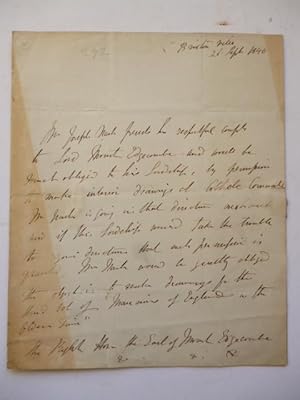 292
Brixton
21 Sept 1840
Mr Joseph Nash presents his respectful compts
to Lord Mount Edgcumbe and would be
much obliged to his Lordship, by permission
to make interior drawings at Cotehele Cornwall
Mr Nash is going in that direction
and if his Lordship would take the trouble
to give directions that such permission is
granted Mr Nash would be greatly obliged
the object is to make drawings for the
third vol of "Mansions of England in the
Olden Time"
The Right Hon. the Earl of Mount Edgcumbe